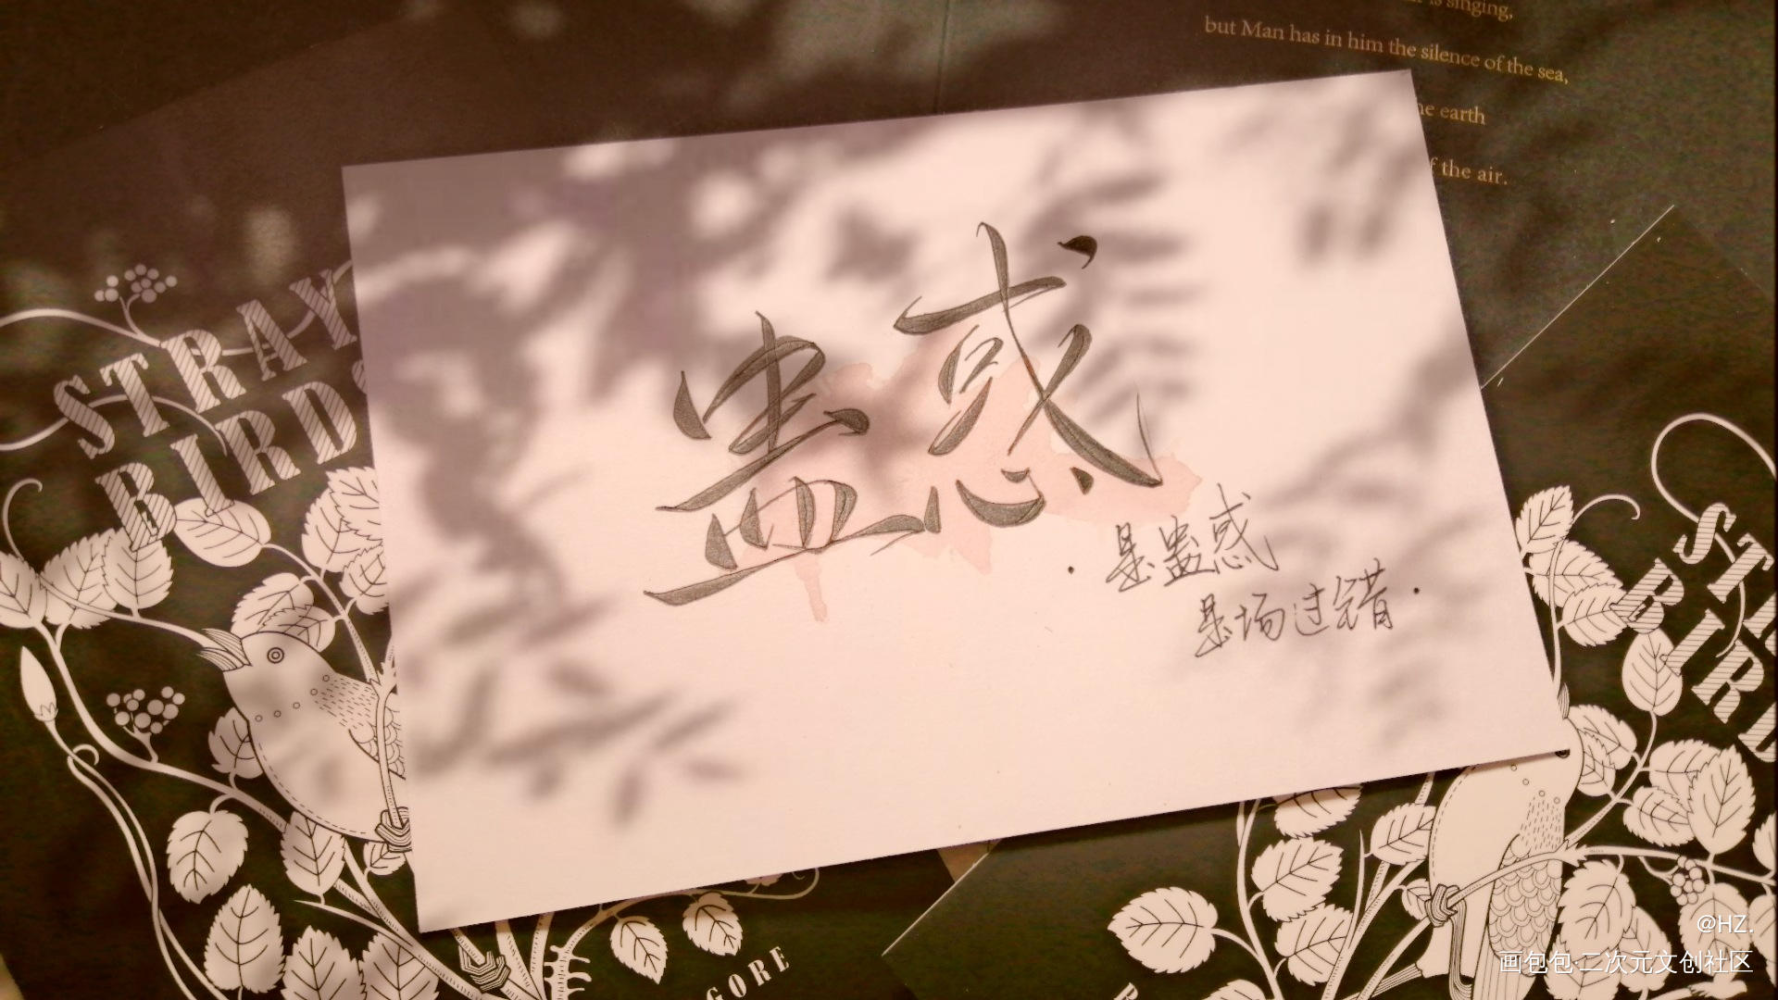 is singing,
but Man has in him the silence of the sea,
the earth
of the air.
STRAY
BIRDS
蛊惑
是蛊惑
是场过错
GORE
@HZ.
画包包 二次元文创社区